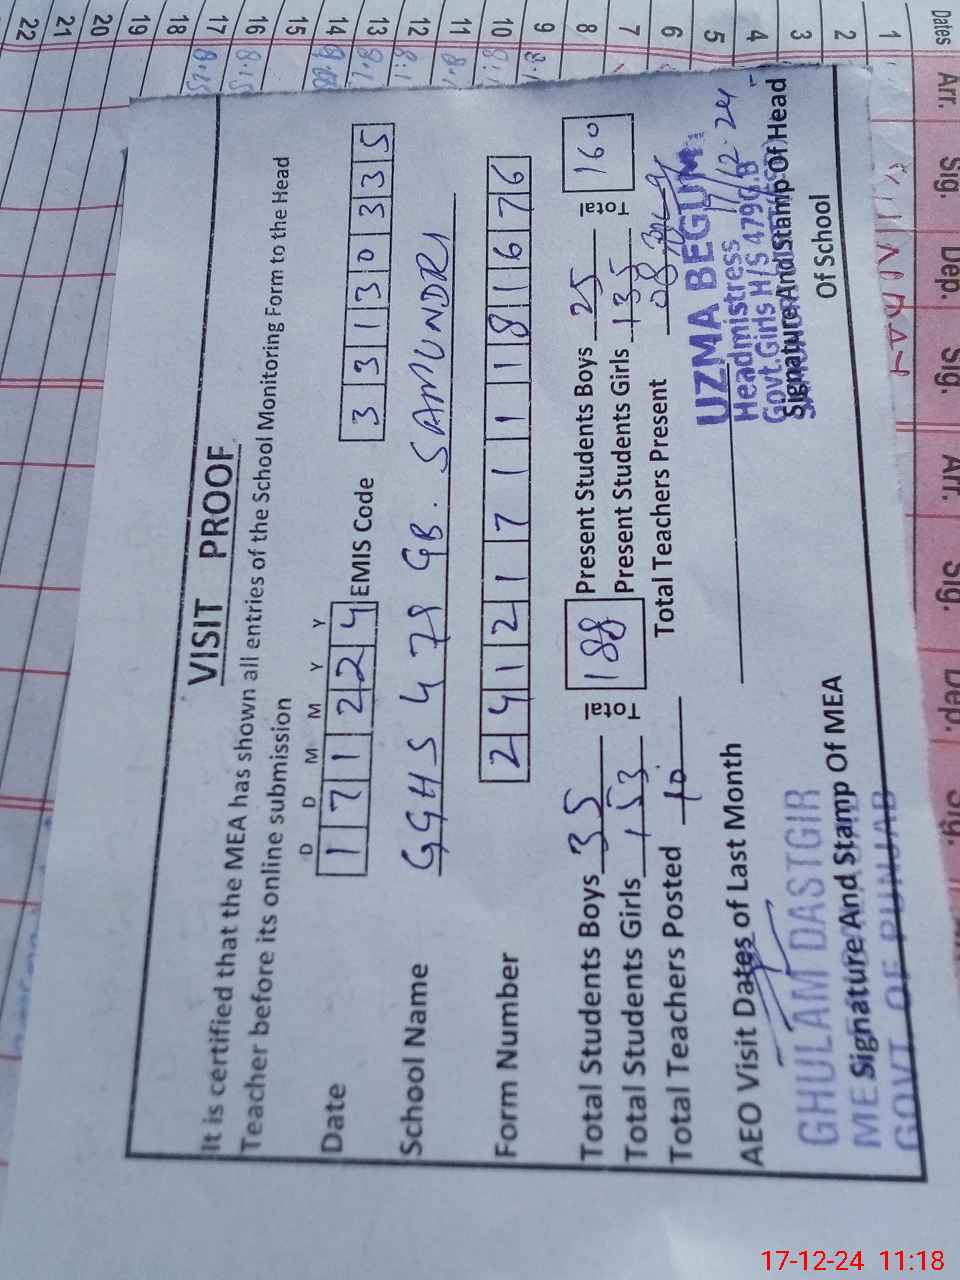 VISIT PROOF
It is certified that the MEA has shown all entries of the School Monitoring Form to the Head
Teacher before its online submission
D D M M Y Y
Date 1 7 1 2 2 4 EMIS Code 3 3 1 3 0 3 3 5
School Name GGHS 479 GB. SAMUNDRI
Form Number 2 4 1 2 1 7 1 1 1 8 1 6 7 6
Total Students Boys 35 Total 188 Present Students Boys 25 Total 160
Total Students Girls 153 Present Students Girls 135
Total Teachers Posted 10 Total Teachers Present 08
AEO Visit Dates of Last Month
UZMA BEGUM
Headmistress
Govt. Girls H/S 479 G.B
17/12-24
Signature And Stamp Of Head
Of School
GHULAM DASTGIR
Signature And Stamp Of MEA
GOVT. OF PUNJAB
Dates Arr. Sig. Dep. Sig. Arr. Sig. Dep. Sig.
1
2
3
4
5
6
7
8
9
10
11
12
13
14
15
16
17
18
19
20
21
22
17-12-24 11:18